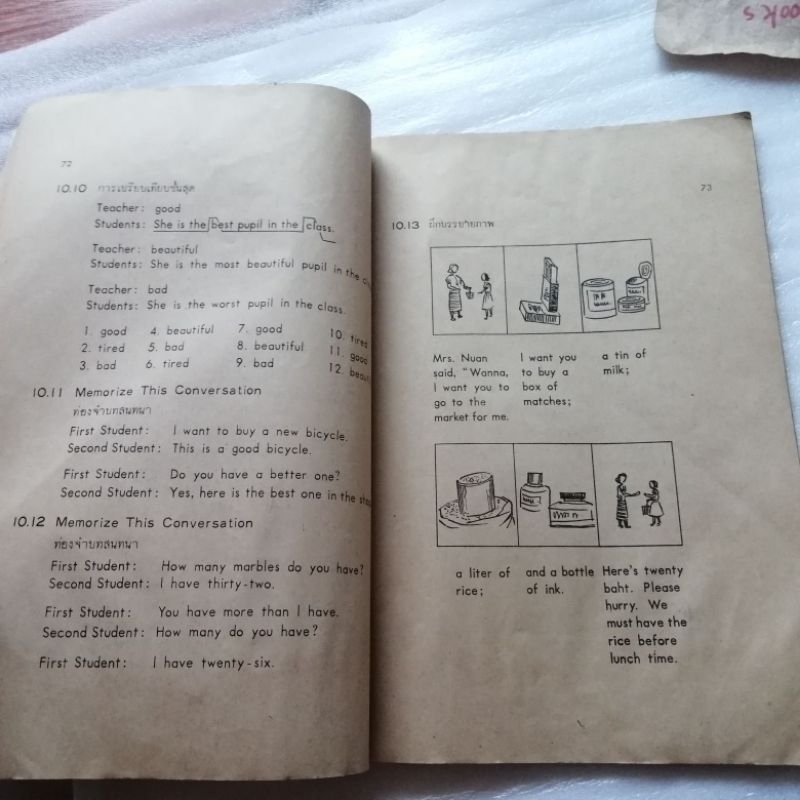 ooks
72
10.10 การเปรียบเทียบขั้นสุด
Teacher: good
Students: She is the best pupil in the class.
Teacher: beautiful
Students: She is the most beautiful pupil in the
Teacher: bad
Students: She is the worst pupil in the class.
1. good 4. beautiful 7. good 10. tired
2. tired 5. bad 8. beautiful 11. good
3. bad 6. tired 9. bad 12.
10.11 Memorize This Conversation
ท่องจำบทสนทนา
First Student: I want to buy a new bicycle.
Second Student: This is a good bicycle.
First Student: Do you have a better one?
Second Student: Yes, here is the best one in the
10.12 Memorize This Conversation
ท่องจำบทสนทนา
First Student: How many marbles do you have?
Second Student: I have thirty-two.
First Student: You have more than I have.
Second Student: How many do you have?
First Student: I have twenty-six.
73
10.13 ฝึกบรรยายภาพ
Mrs. Nuan said, "Wanna, I want you to go to the market for me.
I want you to buy a box of matches;
a tin of milk;
a liter of rice;
and a bottle of ink.
Here's twenty baht. Please hurry. We must have the rice before lunch time.